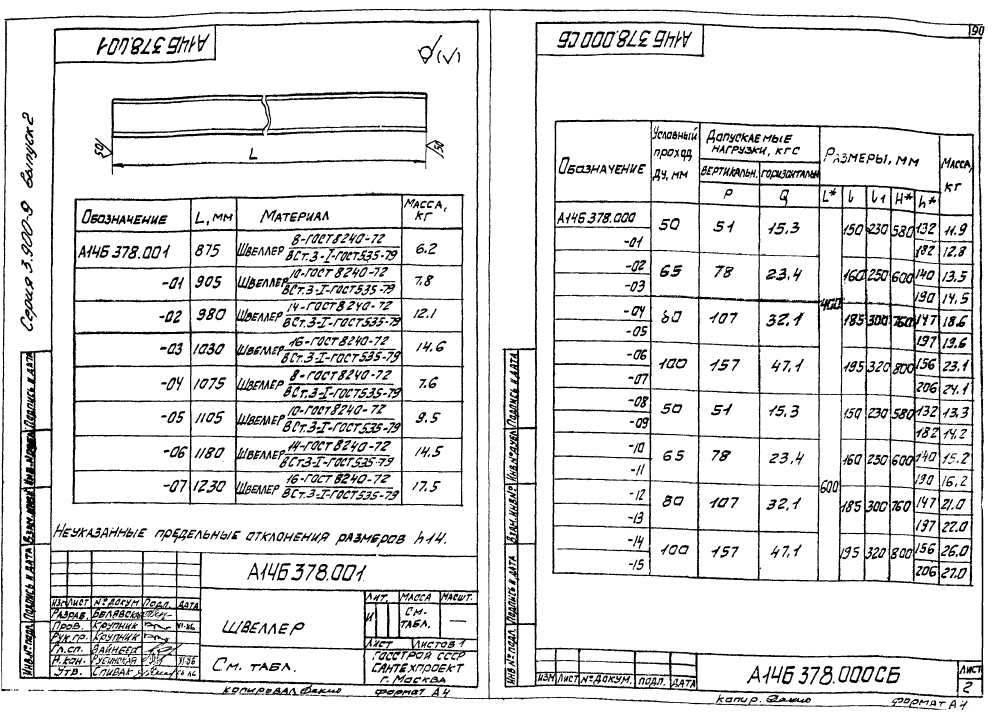 А14Б 378.001
(√)
Серия 3.900-9 выпуск 2
50
50
L
Обозначение L, мм Материал Масса, кг
А14Б 378.001 875 Швеллер 8-ГОСТ 8240-72 / ВСт.3-I-ГОСТ 535-79 6.2
-01 905 Швеллер 10-ГОСТ 8240-72 / ВСт.3-I-ГОСТ 535-79 7.8
-02 980 Швеллер 14-ГОСТ 8240-72 / ВСт.3-I-ГОСТ 535-79 12.1
-03 1030 Швеллер 16-ГОСТ 8240-72 / ВСт.3-I-ГОСТ 535-79 14.6
-04 1075 Швеллер 8-ГОСТ 8240-72 / ВСт.3-I-ГОСТ 535-79 7.6
-05 1105 Швеллер 10-ГОСТ 8240-72 / ВСт.3-I-ГОСТ 535-79 9.5
-06 1180 Швеллер 14-ГОСТ 8240-72 / ВСт.3-I-ГОСТ 535-79 14,5
-07 1230 Швеллер 16-ГОСТ 8240-72 / ВСт.3-I-ГОСТ 535-79 17.5
Неуказанные предельные отклонения размеров h14.
Инв.№ подл. Подпись и дата Взам.инв.№ Инв.№ дубл. Подпись и дата
А14Б 378.001.
Изм Лист № докум Подп. Дата
Разраб. Белявская
Пров. Крупник VI-86
Рук.гр. Крупник
Гл.сп. Вайнбер
Н.кон. Рубинская VI-86
Утв. Спивак
Швеллер
См. табл.
Лит. Масса Масшт.
И См. табл. —
Лист Листов 1
Госстрой СССР
Сантехпроект
г. Москва
Копировал
Формат А4
90
А14Б 378.000СБ
Обозначение Условный проход Ду, мм Допускаемые нагрузки, кгс Размеры, мм Масса, кг
вертикальн. горизонтальн
P Q L* l l1 H* h*
А14Б 378.000 50 51 15,3 400 150 230 580 132 11.9
-01 182 12.8
-02 65 78 23,4 160 250 600 140 13,5
-03 190 14,5
-04 80 107 32,1 185 300 760 147 18.6
-05 197 19.6
-06 100 157 47,1 195 320 800 156 23,1
-07 206 24,1
-08 50 51 15,3 600 150 230 580 132 13.3
-09 182 14.2
-10 65 78 23,4 160 250 600 140 15.2
-11 190 16,2
-12 80 107 32,1 185 300 760 147 21.0
-13 197 22.0
-14 100 157 47,1 195 320 800 156 26.0
-15 206 27.0
Инв.№ подл. Подпись и дата Взам.инв.№ Инв.№ дубл. Подпись и дата
Изм Лист № докум. Подп. Дата
А14Б 378.000СБ
Лист
2
Копир.
Формат А4